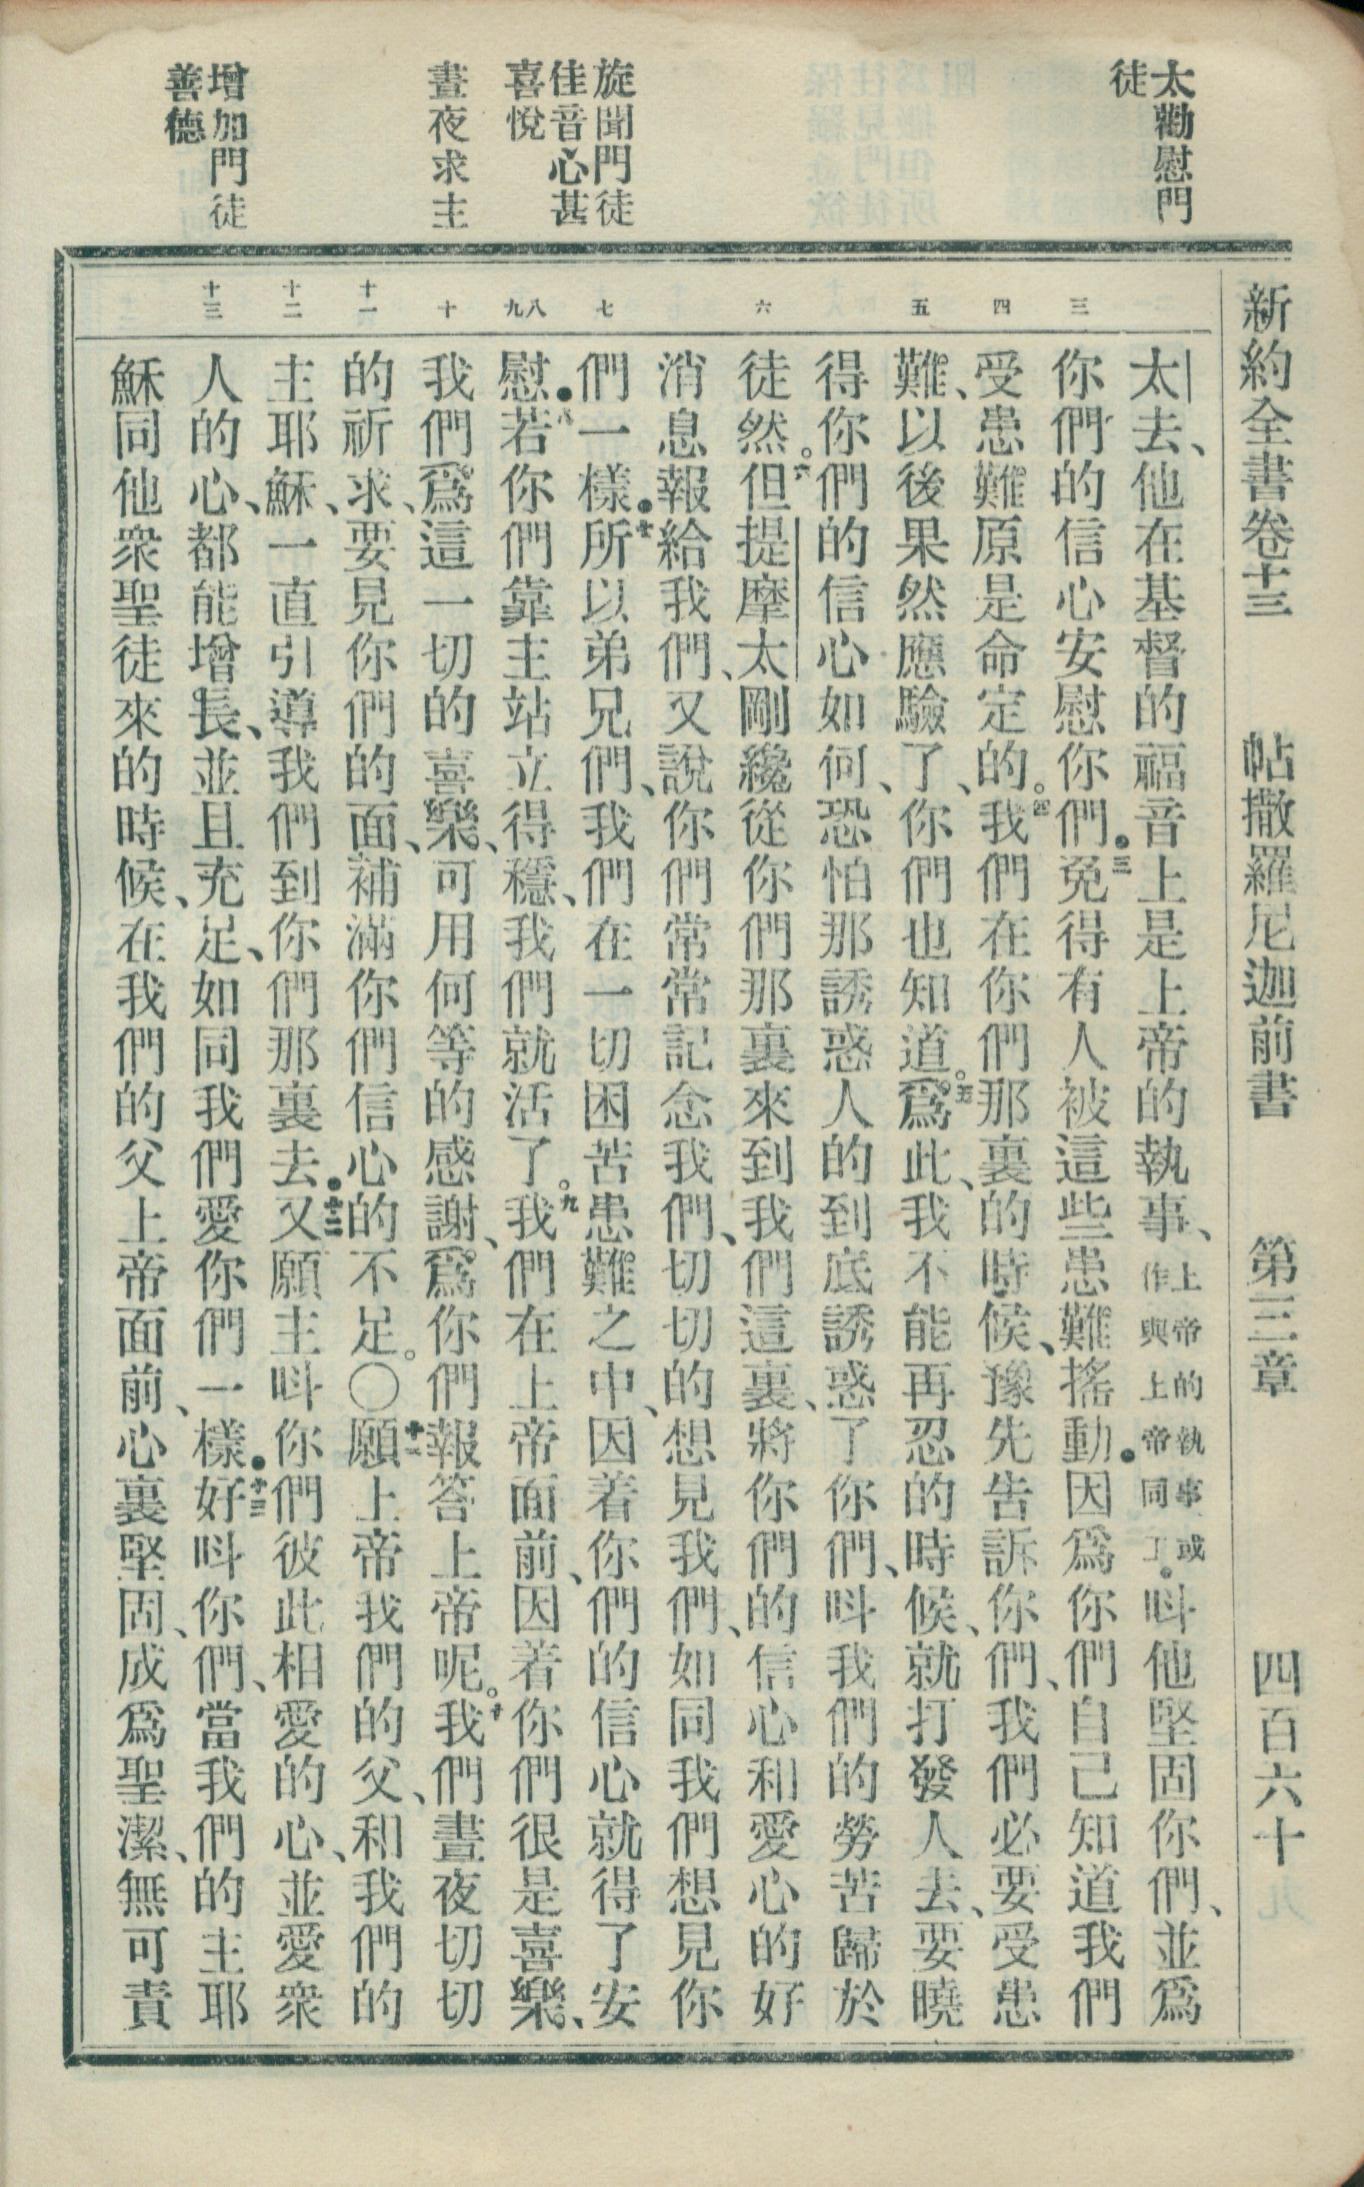 新約全書卷十三　帖撒羅尼迦前書　第三章　四百六十九
太勸慰門
徒
旋聞門徒
佳音心甚
喜悅
晝夜求主
增加門徒
善德
三
四
五
六
七
八
九
十
十一
十二
十三
太去、他在基督的福音上是上帝的執事、上帝的執事或作與上帝同工.呌他堅固你們、並爲
你們的信心安慰你們.三免得有人被這些患難搖動.因爲你們自己知道我們
受患難原是命定的。四我們在你們那裏的時候、豫先告訴你們、我們必要受患
難、以後果然應驗了、你們也知道。五爲此、我不能再忍的時候、就打發人去、要曉
得你們的信心如何、恐怕那誘惑人的到底誘惑了你們、呌我們的勞苦歸於
徒然。六但提摩太剛纔從你們那裏來到我們這裏、將你們的信心和愛心的好
消息報給我們、又說你們常常記念我們、切切的想見我們、如同我們想見你
們一樣.七所以弟兄們、我們在一切困苦患難之中、因着你們的信心就得了安
慰.八若你們靠主站立得穩、我們就活了。九我們在上帝面前、因着你們很是喜樂、
我們爲這一切的喜樂、可用何等的感謝、爲你們報答上帝呢。十我們晝夜切切
的祈求、要見你們的面、補滿你們信心的不足。〇十一願上帝我們的父、和我們的
主耶穌、一直引導我們到你們那裏去.十二又願主呌你們彼此相愛的心、並愛衆
人的心、都能增長、並且充足、如同我們愛你們一樣.十三好呌你們、當我們的主耶
穌同他衆聖徒來的時候、在我們的父上帝面前、心裏堅固、成爲聖潔、無可責